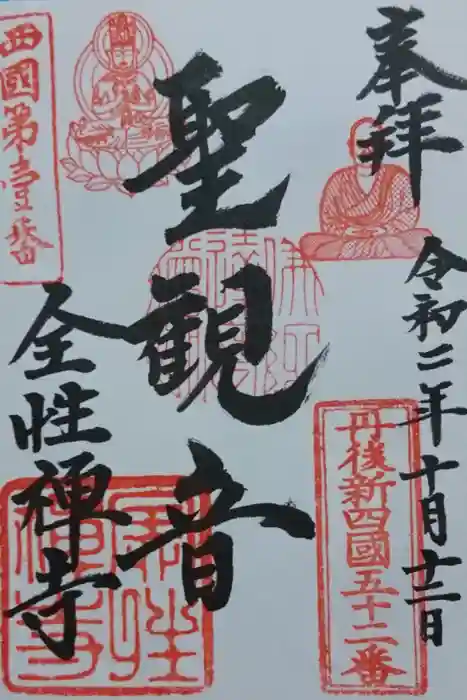 奉拝
令和二年十月十三日
聖観音
全性禅寺
西國第壹番
丹後新四國五十二番